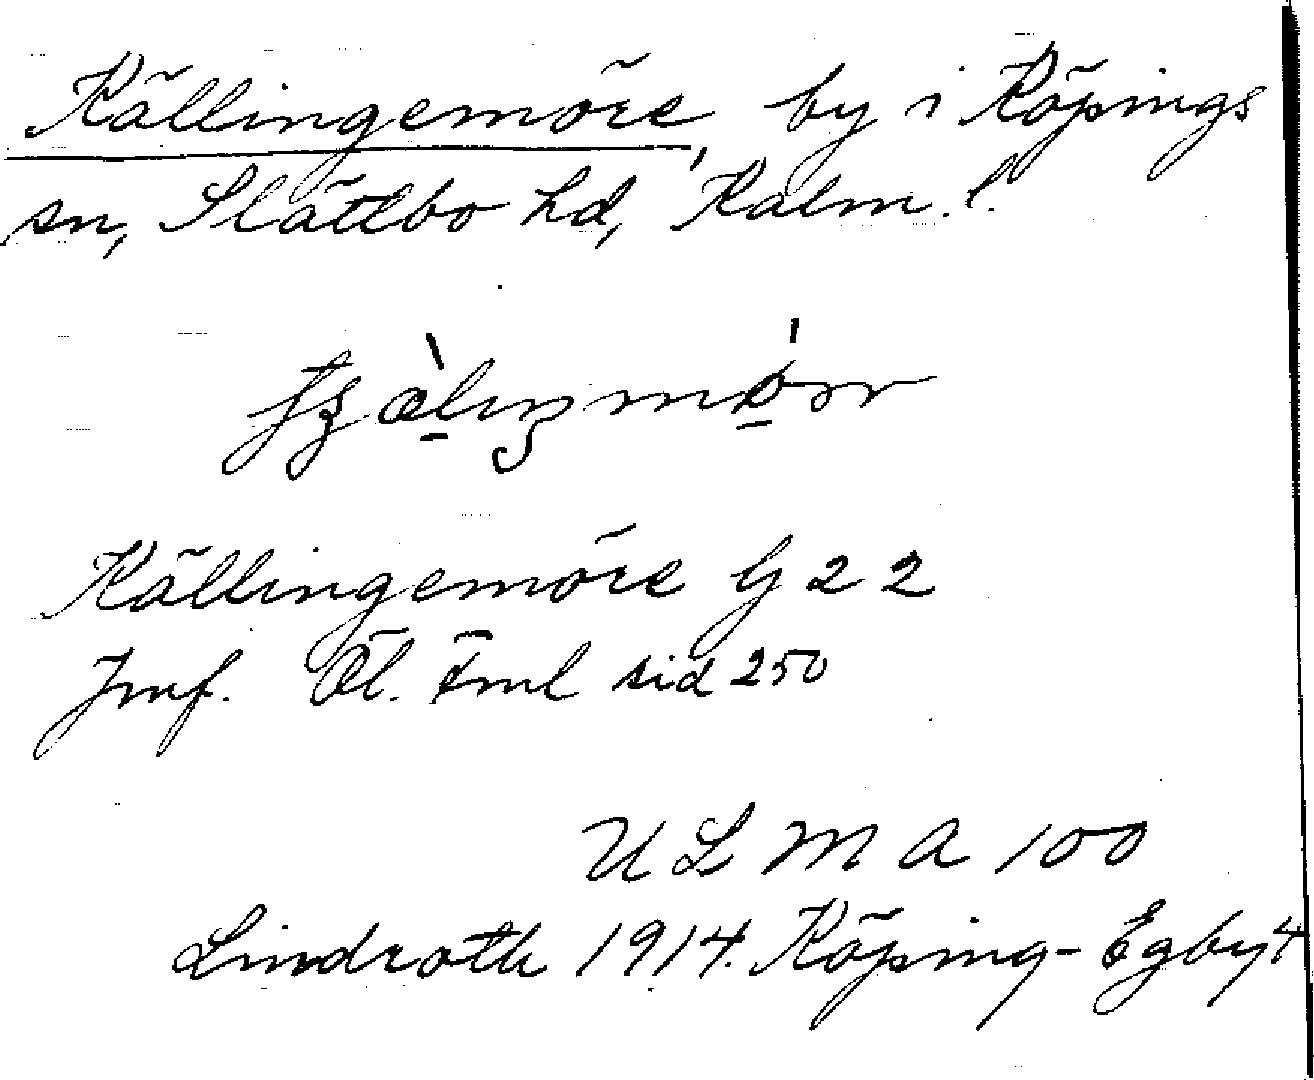 Källingemöre, by i Köpings
sn, Slättbo hd, Kalm. l.
Källingemöre G 22
Jmf. Öl. Fml sid 250
ULMA 100
Lindroth 1914. Köping-Egby 4